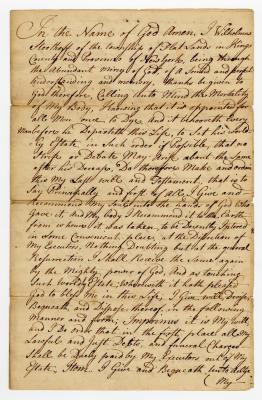 In the Name of God Amen, I Wilhelmus
Stoothoff of the township of Flat Lands in Kings
County and Province of New York, being through
the abundant Mercy of God of a Sound and perfect
Understanding and memory, thanks be given to
God therefore, Calling Unto Mind the Mortality
of My Body, Knowing that it is appointed for
all Men once to Dye, and it behooveth Every
Man before he Departeth this Life, to Set his World
ly Estate, in Such order if Possible, that no
Strife or Debate May Arise about the Same
after his Decease, Do therefore Make and ordain
this My Last will and Testament, that is to
Say Principally, and first of all, I Give and
Recommend My Soul into the hands of God who
Gave it, and My body I Recommend it to the Earth
from whence it was taken, to be Decently Interred
in Some Convenient place, at the Discretion of
My Executors, Nothing Doubting but at the general
Resurrection I Shall Receive the Same again
by the Mighty power of God, And as touching
Such worldly Estate, wherewith it hath pleased
God to bless me in this Life, I give, Devise,
Bequeath, and Dispose thereof, in the following
Manner and form; Imprimis it is My Will
and I Do order that in the first place all My
Lawful and Just Debts, and funeral Charges
Shall be Duely paid by My Executors out of My
Estate, Item. I Give and Bequeath unto
My